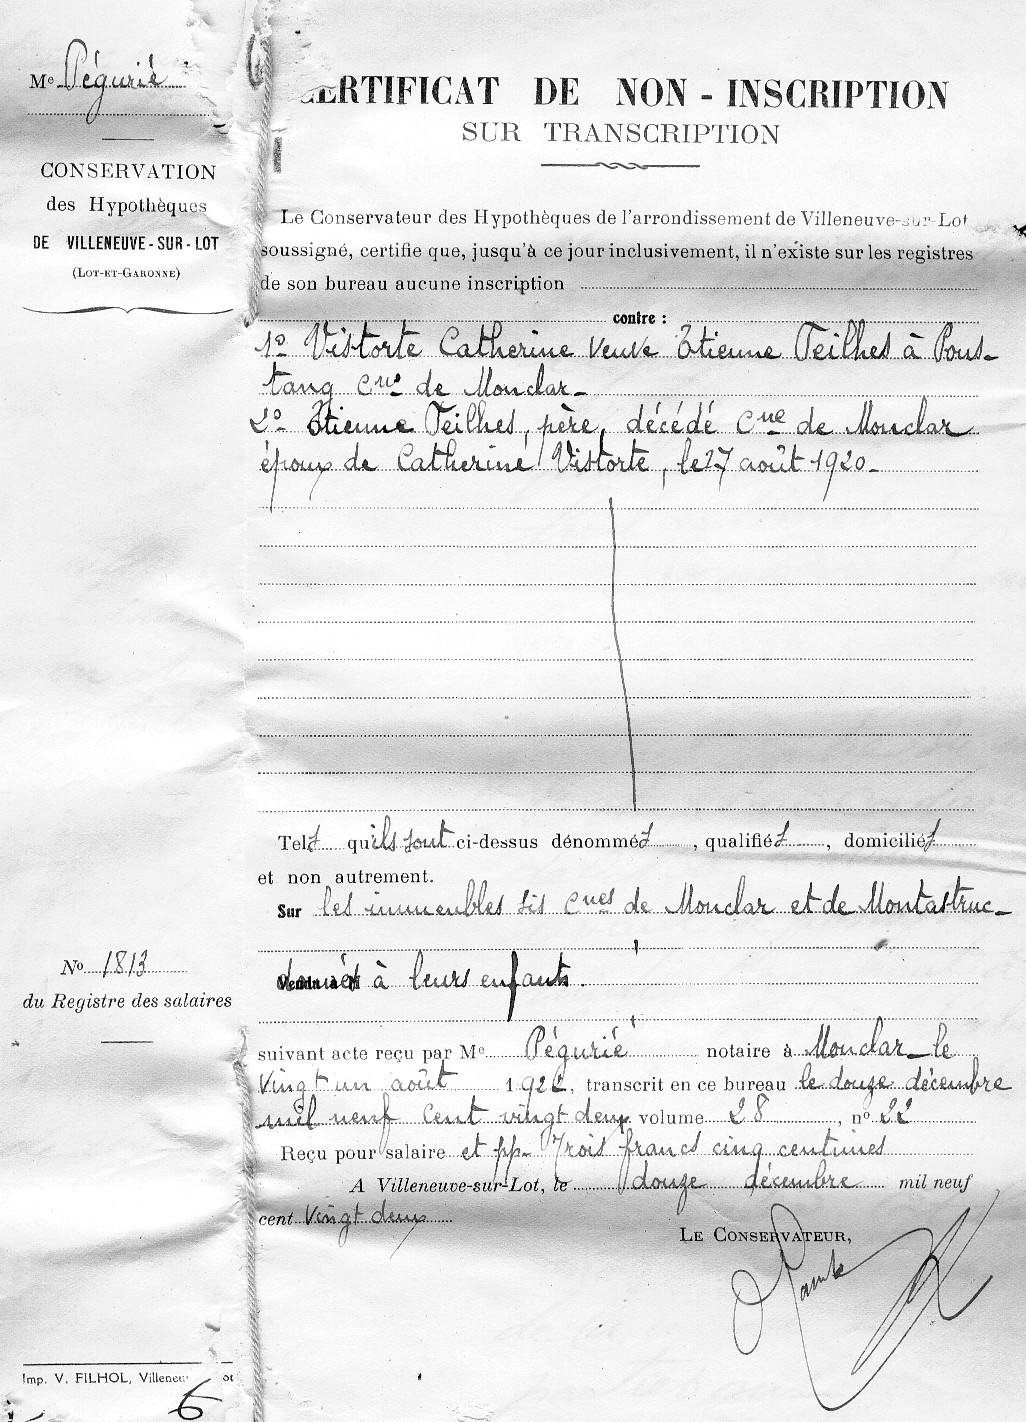 Me Pégurié
CONSERVATION
des Hypothèques
DE VILLENEUVE-SUR-LOT
(LOT-ET-GARONNE)
CERTIFICAT DE NON-INSCRIPTION
SUR TRANSCRIPTION
Le Conservateur des Hypothèques de l'arrondissement de Villeneuve-sur-Lot
soussigné, certifie que, jusqu'à ce jour inclusivement, il n'existe sur les registres
de son bureau aucune inscription
contre :
1º Vistorte Catherine veuve Etienne Teilhes à Pous-
tang cne de Monclar-
2º Etienne Teilhes, père, décédé cne de Monclar
époux de Catherine Vistorte, le 27 août 1920-
Tels qu'ils sont ci-dessus dénommés, qualifiés, domiciliés
et non autrement.
Sur les immeubles sis cnes de Monclar et de Montastruc-
Vendu à M
donnés à leurs enfants.
Nº 1813
du Registre des salaires
suivant acte reçu par Me Pégurié notaire à Monclar le
vingt un août 1922, transcrit en ce bureau le douze décembre
mil neuf cent vingt deux volume 28, nº 22
Reçu pour salaire et pp- Trois francs cinq centimes
A Villeneuve-sur-Lot, le douze décembre mil neuf
cent vingt deux
LE CONSERVATEUR,
Imp. V. FILHOL, Villeneu ot
6